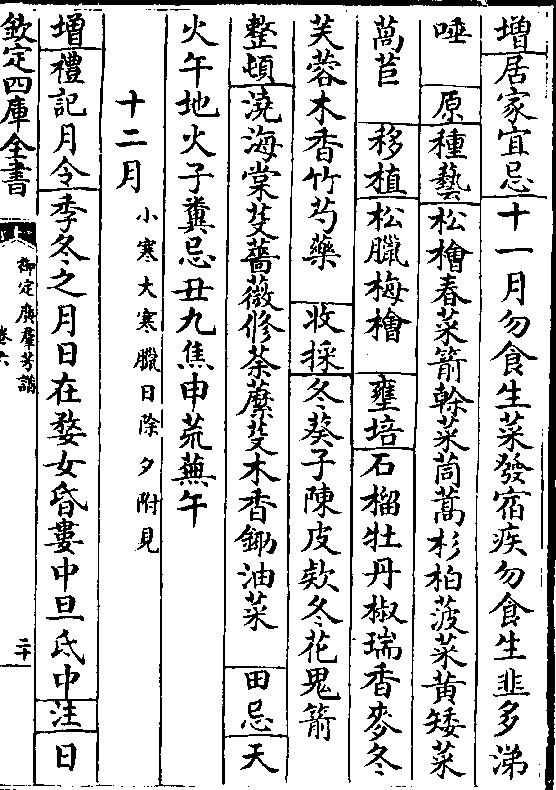 增居家宜忌十一月勿食生菜發宿疾勿食生韭多涕
唾　原種藝松檜春菜箭幹菜茼蒿杉柏菠菜黃矮菜
萵苣　移植松臘梅檜　壅培石榴牡丹椒瑞香麥冬
芙蓉木香竹芍藥　收採冬葵子陳皮欵冬花鬼箭
整頓澆海棠芟薔薇修荼蘼芟木香鋤油菜　田忌天
火午地火子糞忌丑九焦申荒蕪午
十二月　小寒大寒臘日除夕附見
增禮記月令季冬之月日在婺女昏婁中旦氐中注日
欽定四庫全書　御定廣羣芳譜　卷六　二十